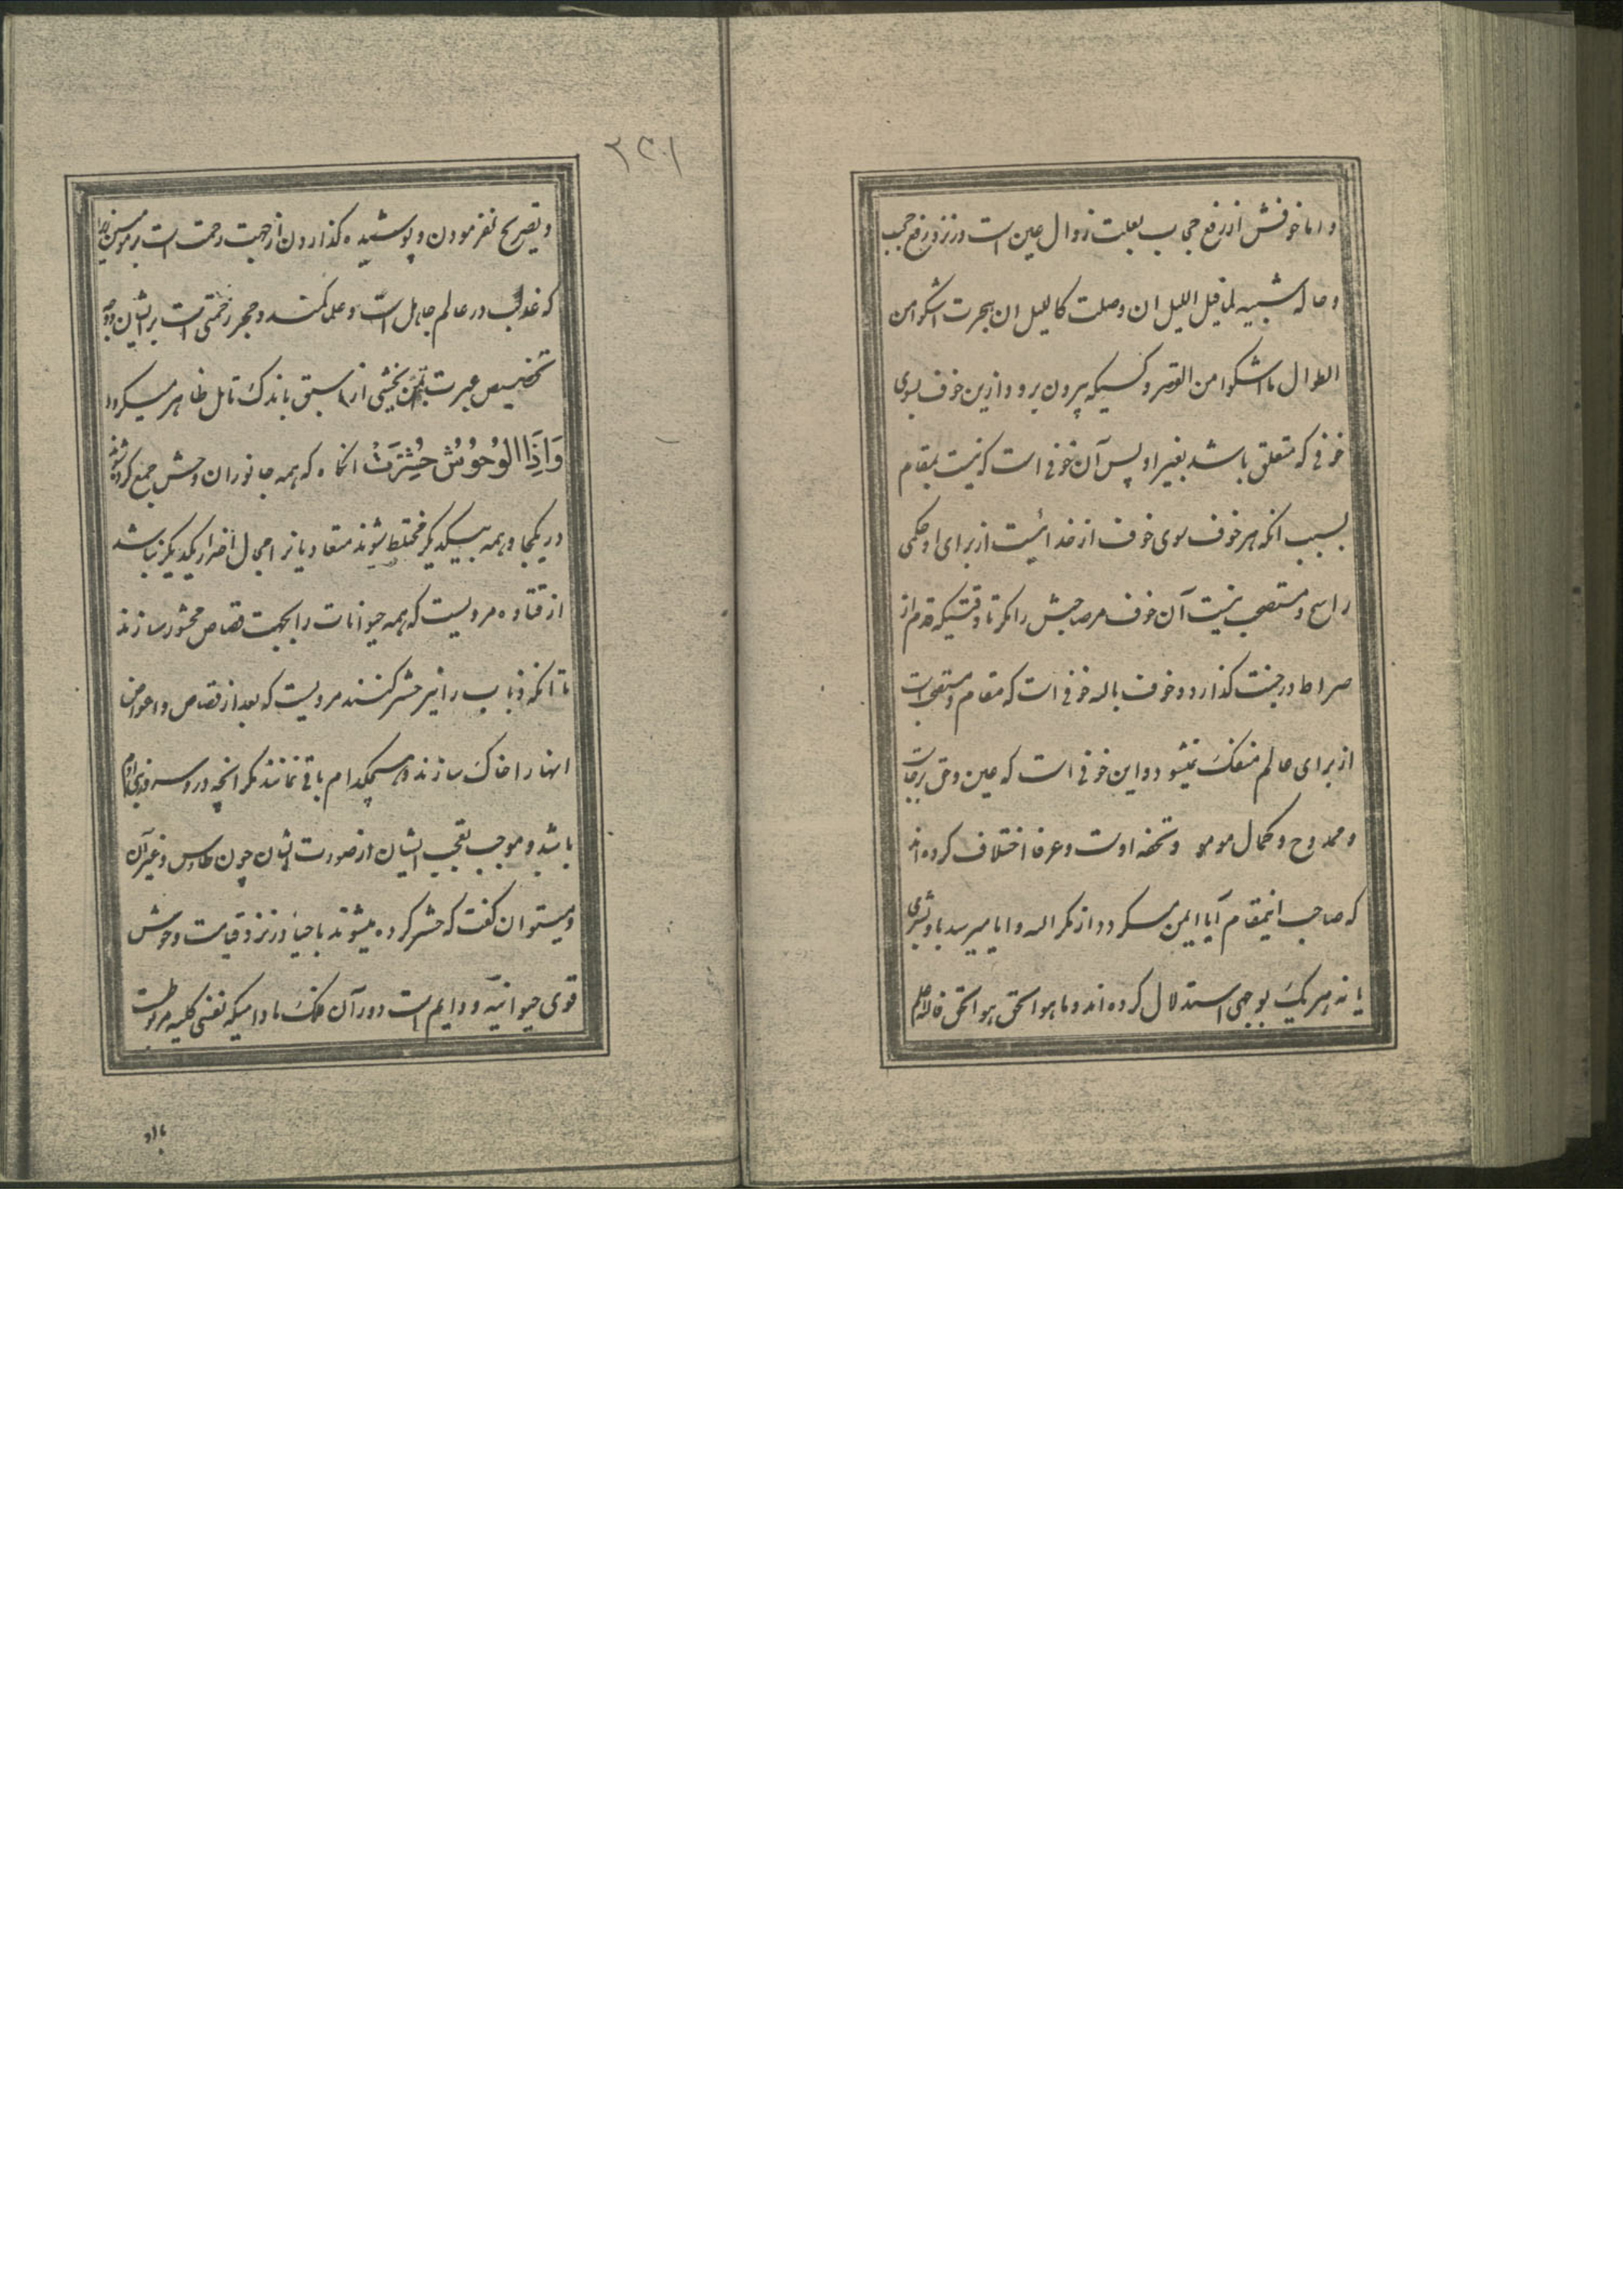 و اما خوفش از رفع حجاب بعلت زوال عین است در نزد رفع حجب
و حاله شبیه لما قیل اللیل ان وصلت کاللیل ان هجرت اشکو من
الطوال ما اشکوا من القصر و کسیکه بیرون برود ازین خوف بسوی
خوفی که متعلق باشد بغیر او پس آن خوفی است که نیست بمقام
بسبب انکه هر خوف سوی خوف از خدا نیست از برای او حکمی
راسخ و مستصحب نیست آن خوف مر صاحبش را مگر تا وقتیکه قدم از
صراط در جنت گذارد و خوف باله خوفی است که مقام و مستصحب است
از برای عالم منفک نمیشود و این خوفی است که عین وحی
و ممدوح و کمال مومو و تحفه اوست و عرفا اختلاف کرده اند
که صاحب اینمقام آیا ایمن میکردد از مکر اله و ایا میرسد باو بشری
یا نه هریک بوجهی استدلال کرده اند و ما هو الحق هو الحق
۲۲۱
و تصریح نفرمودن و پوشیده گذاردن از جهت رحمت است بر مومنین
که غالب در عالم جاهل است و علم کمند و حجر زحمتی است بر ایشان
تخصیص عبرت بخشی از سبق باندک تامل ظاهر میکردد
وَاِذَا الوُحُوُشُ حُشِرَتْ انکاه که همه جانوران وحش جمع کرده شوند
در یکجا و همه بیکدیگر مختلط شوند متعادیانرا مجال اضرار یکدیگر نباشد
از قتاده مرویست که همه حیوانات را بجهت قصاص محشور سازند
تا آنکه ذباب را نیز حشر کنند مرویست که بعد از قصاص و اعواض
انها را خاک سازند و هیچکدام باقی نمانند مگر انچه در و سرور بنی آدم
باشد و موجب تعجب ایشان از صورت ایشان چون طاوس و غیر آن
و میتوان گفت که حشر کرده میشوند باحیا در نزد قیامت وحوش
قوی حیوانیه و دایم است دور آن فلک مادامیکه نفس کلیه مربوطست
باو